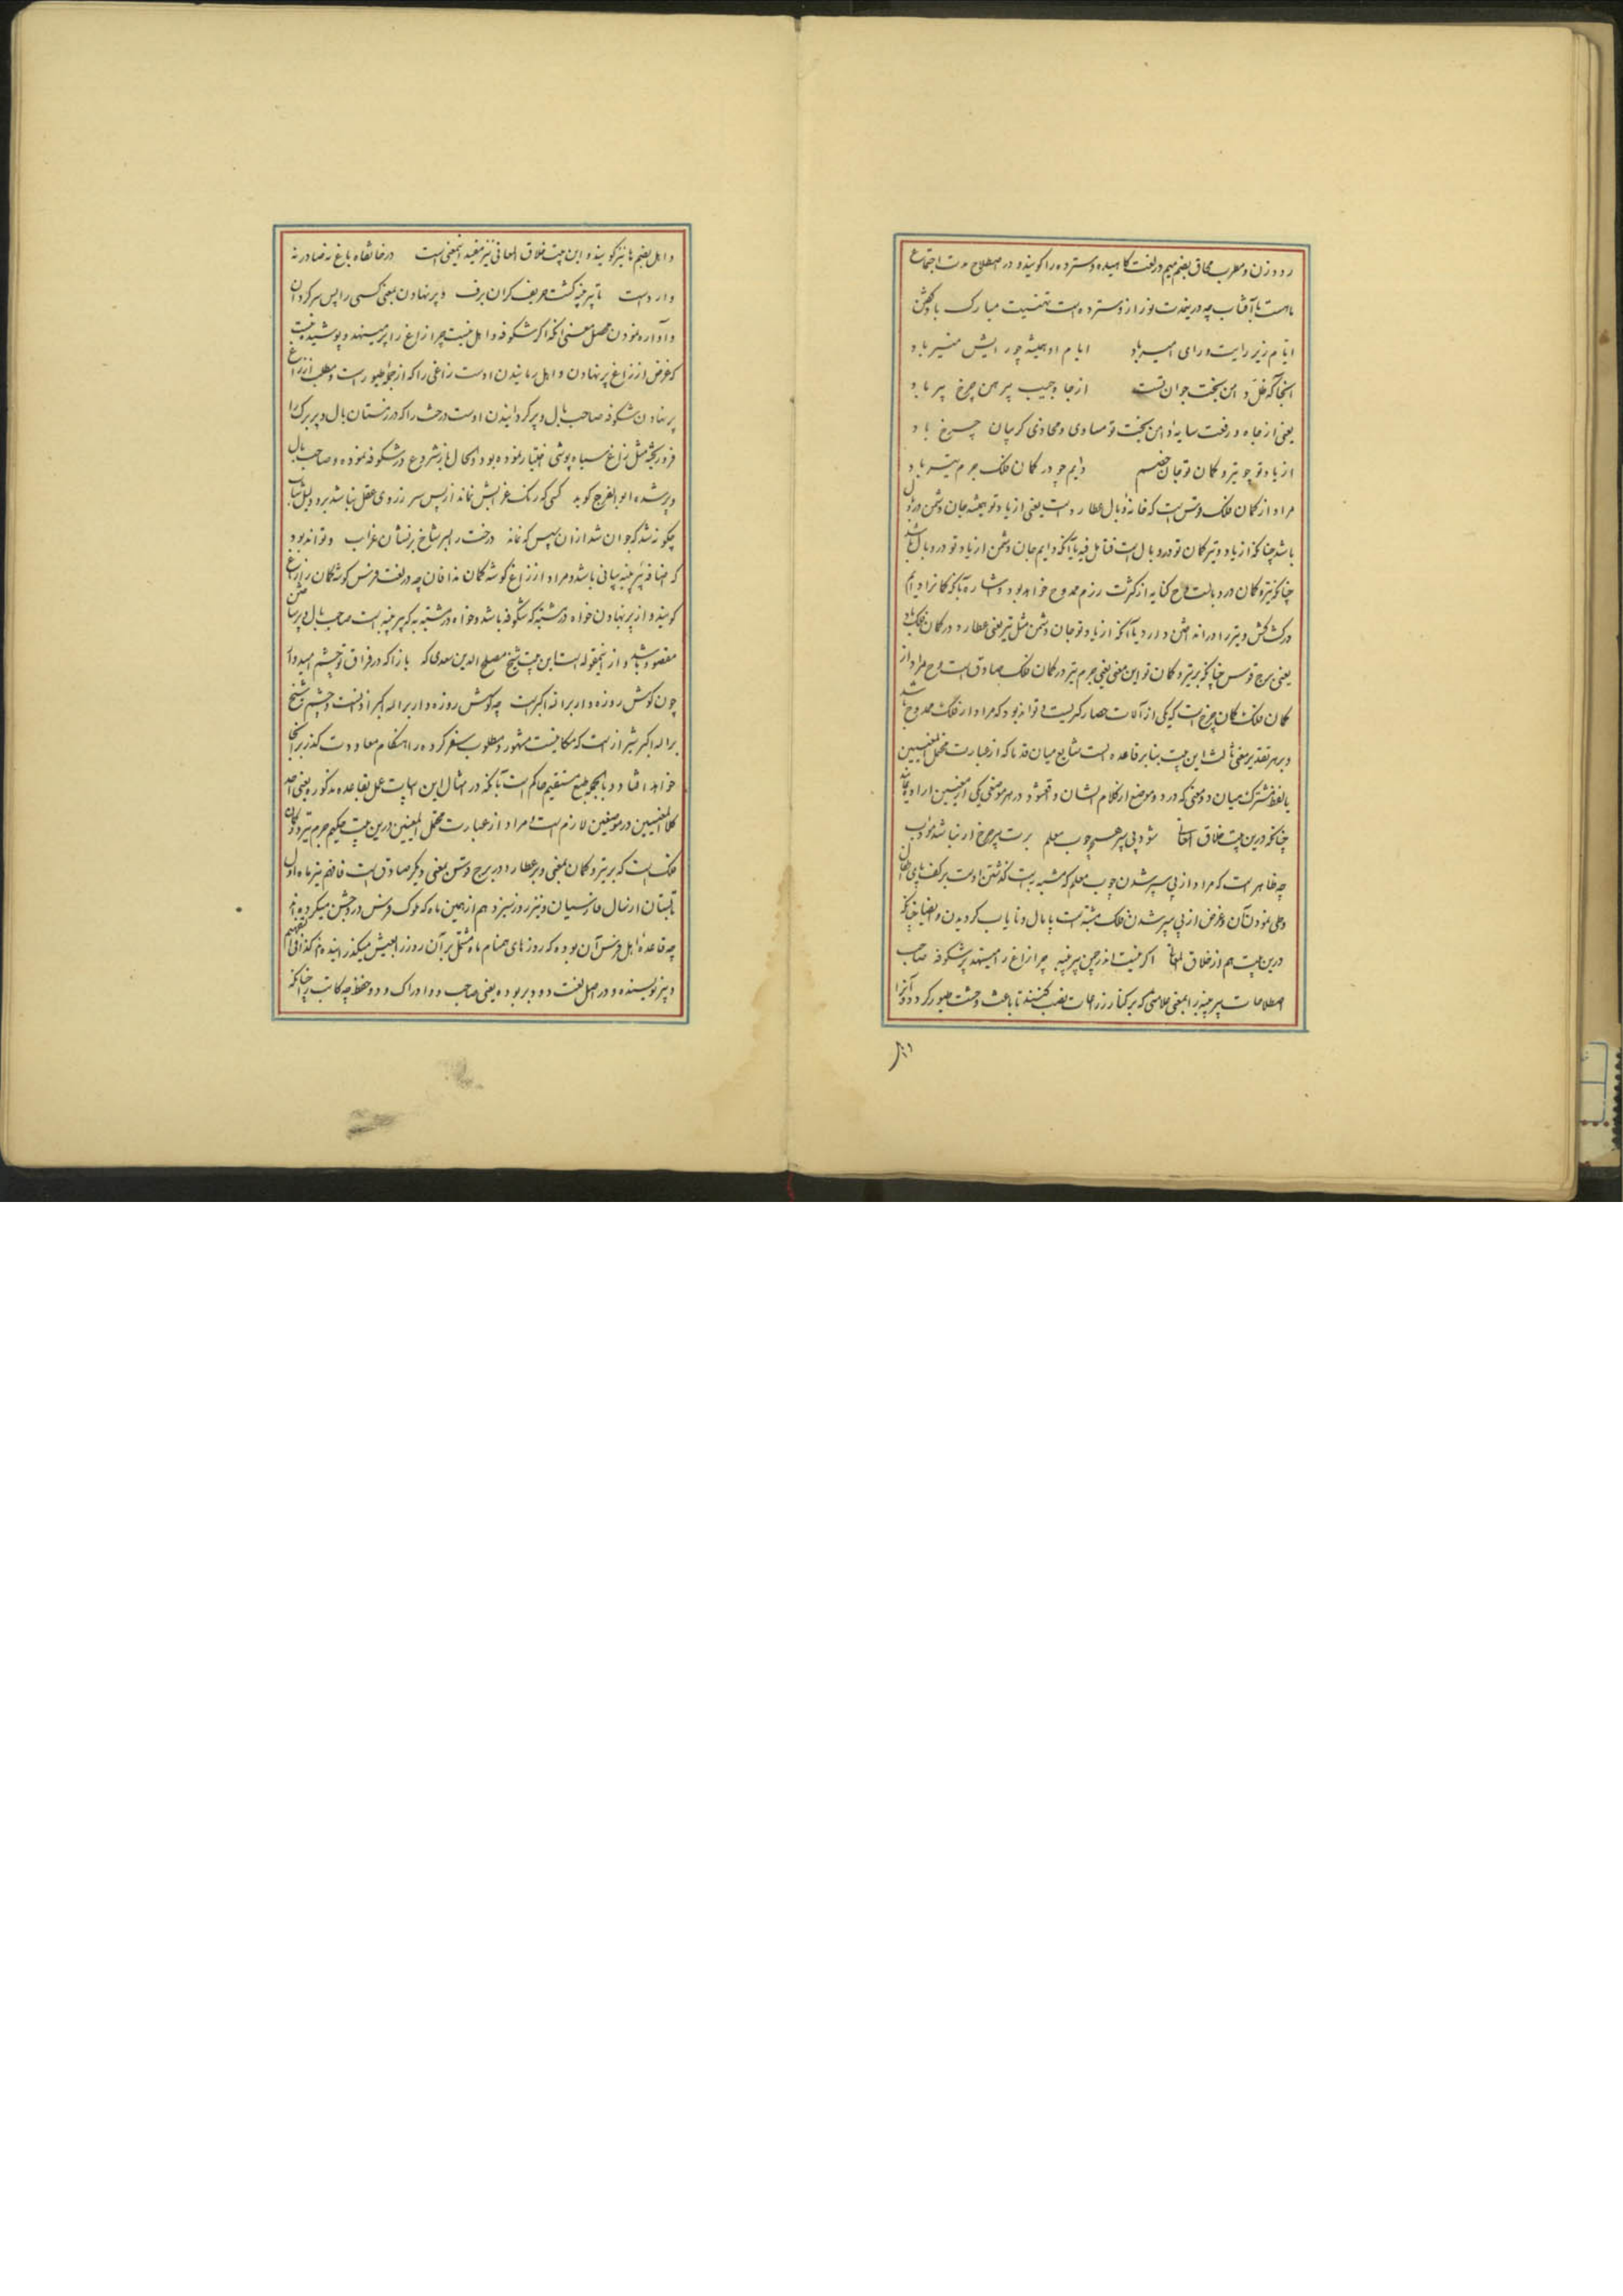 رود زن و مطرب محاق بضم میم در لغت کاهیده و سترده را کویند و در اصطلاح مدت اجتماع
ماهست با آفتاب چه درینمدت نور از و سترده است تهنیت مبارک باد کفتن
ایام زیر رایت و رای امیر باد ایام او همیشه چو رایش منیر باد
آنجا که ظل دامن بخت جوان تست از جا وجیب پیرهن چرخ پیر باد
یعنی از جاه و رفعت سایه دامن بخت تو مساوی و محاذی کریبان چرخ باد
از یاد تو چو تیر و کمان تو جان خصم دایم چو در کمان فلک جرم تیر باد
مراد از کمان فلک قوس است که خانه وبال عطارد است یعنی از یاد تو همیشه جان دشمن در وبال
باشد چنانکه از یاد و تیر کمان تو در وبال است فتامل فیه یا آنکه دایم جان دشمن از یاد تو در وبال باشد
چنانکه تیر و کمان در وبالست و ح کنایه از کثرت رزم ممدوح خواهد بود و اشاره بآنکه کمانرا دایم
در کشاکش و تیر را در انداختن دارد یا آنکه از یاد تو جان دشمن مثل تیر یعنی عطارد در کمان فلک باد
یعنی برج قوس چنانکه بر تیر و کمان تو این معنی یعنی جرم تیر در کمان فلک صادق است و ح مراد از
کمان فلک کمان چرخ است که یکی از آلات حصار کیریست و تواند بود که مراد از فلک ممدوح باشد
و بر هر تقدیر معنی ثالث این بیت بنابر قاعده است شایع میان قدما که از عبارت محتمل المعنیین
یا لفظ مشترک میان دو معنی که در دو موضع از کلام ایشان واقع شود در هر موضعی یکی از معنیین اراده نمایند
چنانکه درین بیت خلاق المعانی شود پی سپر همچو چوب معلم برت پیر چرخ ار نباشد مؤدب
چه ظاهر است که مراد از پی سپر شدن چوب معلم که مشبه به است کذشتن اوست بر کف پای اطفال
و طی نمودن آن و غرض از پی سپر شدن فلک مشبه است پایمال و نایاب کردیدن و ایضا چنانکه
درین بیت هم از خلاق المعانی اکر نیست اندر چمن پیر پنبه چرا زاغ را مینهد پر شکوفه صاحب
اصطلاحات پیر پنبه را بمعنی علامتی که بر کنار زراعات نصب کنند تا باعث وحشت طیور کردد و آنرا
داهل بضم ها نیز کویند و این بیت خلاق المعانی نیز مفید اینمعنی است در خانقاه باغ نه صادر نه
وارد است تا پیر پنبه کشت حریف کران برف و پر نهادن بمعنی کسی را پس سر کردن
و آواره نمودن محصل معنی آنکه اکر شکوفه داهل نیست چرا زاغ را پر مینهد و پوشیده نیست
که غرض از زاغ پر نهادن داهل رمانیدن اوست زاغی را که از جمله طیور است و مطلب از زاغ
پر نهادن شکوفه صاحب بال و پر کردانیدن اوست درخت را که در زمستان بال و پر برک را
فرو ریخته مثل زاغ سیاه پوشی اختیار نموده بود و الحال باز شروع در شکوفه نموده و صاحب بال
و پر شده ابو الفرج کوید کسی که رنک غرابش نماند از پس سر ز روی عقل نباشد برو دلیل شباب
چکونه شد که جوان شد ازان سپس که نماند درخت را بسر شاخ بر نشان غراب و تواند بود
که اضافه پیر پنبه بیانی باشد و مراد از زاغ کوشه کمان نداف آن چه در لغت فرس کوشه کمان را زاغ
کویند و از پر نهادن خواه در مشبه که شکوفه باشد و خواه در مشبه به که پیر پنبه است صاحب بال و پر ساختن
مقصود باشد و از اینمقوله است این بیت شیخ مصلح الدین سعدی که باز آ که در فراق تو چشم امیدوار
چون کوش روزه دار بر الله اکبر است چه کوش روزه دار بر الله اکبر اذانست و چشم شیخ
بر الله اکبر شیراز است که مکانیست مشهور و مطلوب سفر کرده را هنکام معاودت کذر بر آنجا
خواهد افتاد و بالجمله طبع مستقیم حاکم است بآنکه در امثال این ابیات عمل بقاعده مذکوره یعنی اخذ
کلا المعنیین در موضعین لازم است و مراد از عبارت محتمل المعنیین درین بیت حکیم جرم تیر در کمان
فلک است که بر تیر و کمان بمعنی و بر عطارد در برج قوس بمعنی دیکر صادق است فافهم تیر ماه اول
تابستان از سال فارسیان و نیز روز سیزدهم از همین ماه که ملوک فرس در و جشن میکرده اند
چه قاعده اهل فرس آن بوده که روزهای همنام ماه مشتمل بر آن روز را بعیش میکذرانیده اند کذا فی التفهیم
دبیر نویسنده و در اصل لغت دو ویر بوده یعنی صاحب دو ادراک و دو حفظ چه کاتب را چنانکه